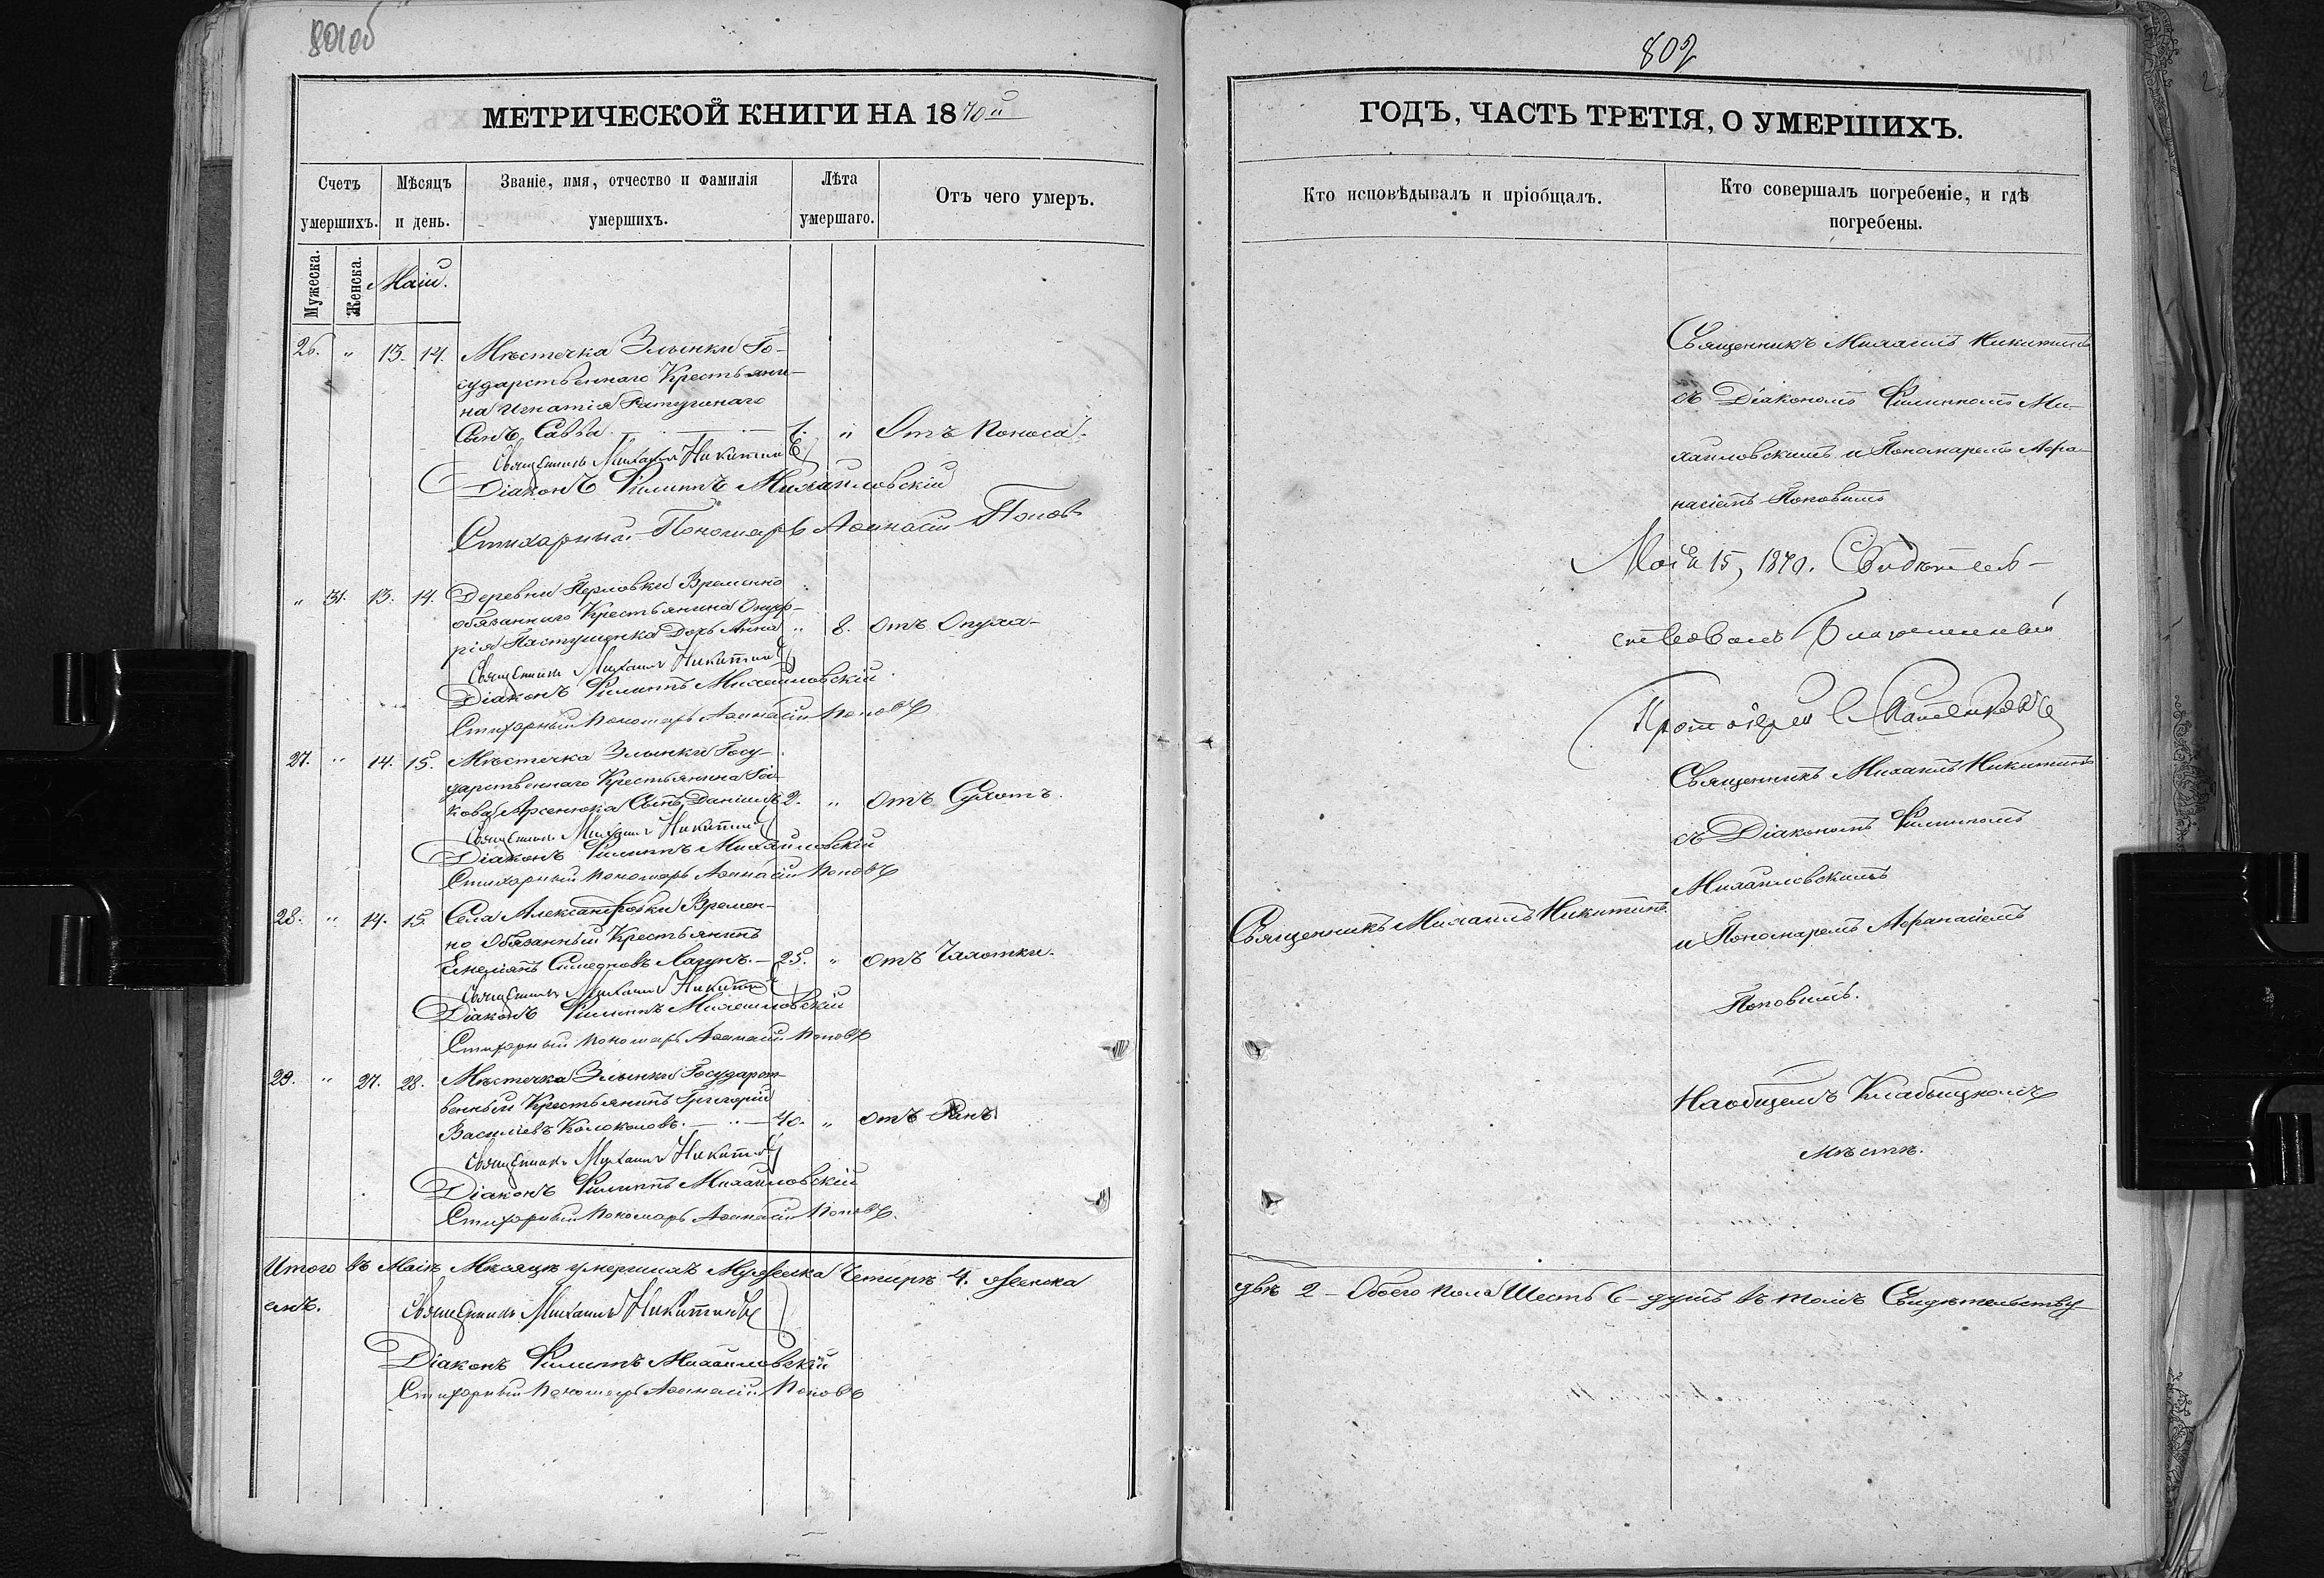 801об
МЕТРИЧЕСКОЙ КНИГИ НА 1870й
Счетъ умершихъ.
Мѣсяцъ и день.
Званіе, имя, отчество и фамилія умершихъ.
Лѣта умершаго.
Отъ чего умеръ.
Мужеска.
Женска.
Маій.
26. " 13. 14. Мѣстечка Злынки Го-
сударственнаго Крестьяни-
на Игнатія
Сынъ Савва 1. " Отъ Поноса.
Священникъ Михаилъ Никитинъ
Діаконъ Филиппъ Михайловскій
Стихарный Пономарь Аѳанасій Поповъ
" 31. 13. 14. Деревни Перловки Временно
обязаннаго Крестьянина Онуф-
рія Пастушенка Дочь Анна " 8. Отъ Опуха-
Священникъ Михаилъ Никитинъ
Діаконъ Филиппъ Михайловскій
Стихарный Пономарь Аѳанасій Поповъ
27. " 14. 15. Мѣстечка Злынки Госу-
дарственнаго Крестьянина Іа-
кова Арсенюка Сынъ Даніилъ 2. " Отъ Сухотъ.
Священникъ Михаилъ Никитинъ
Діаконъ Филиппъ Михайловскій
Стихарный Пономарь Аѳанасій Поповъ
28. " 14. 15. Села Александровки Времен-
но Обязанный Крестьянинъ
Емеліянъ Симеоновъ Лазунъ. — 25. " Отъ Чахотки.
Священникъ Михаилъ Никитинъ
Діаконъ Филиппъ Михайловскій
Стихарный Пономарь Аѳанасій Поповъ
29. " 27. 28. Мѣстечка Злынки Государст-
венный Крестьянинъ Григорій
Василіевъ Колоколовъ. — 40. " Отъ Ранъ
Священникъ Михаилъ Никитинъ
Діаконъ Филиппъ Михайловскій
Стихарный Пономарь Аѳанасій Поповъ.
Итого въ Маіѣ Мѣсяцѣ умершихъ Мужеска Четыре 4. женска
емъ.
Священникъ Михаилъ Никитинъ
Діаконъ Филиппъ Михайловскій
Стихарный Пономарь Аѳанасій Поповъ
802
ГОДЪ, ЧАСТЬ ТРЕТІЯ, О УМЕРШИХЪ.
Кто исповѣдывалъ и пріобщалъ.
Кто совершалъ погребеніе, и гдѣ погребены.
Священникъ Михаилъ Никитинъ
съ Діакономъ Филиппомъ Ми-
хайловскимъ и Пономаремъ Афа-
насіемъ Поповымъ
Маія 15, 1870. Свидѣтель-
ствовалъ Благочинный
Протоіерей
Священникъ Михаилъ Никитинъ
съ Діакономъ Филиппомъ
Михайловскимъ
Священникъ Михаилъ Никитинъ.
и Пономаремъ Афанасіемъ
Поповымъ.
На общемъ Кладбищномъ
мѣстѣ.
двѣ 2 — Обоего пола Шесть 6 — душъ въ томъ Свидѣтельству-